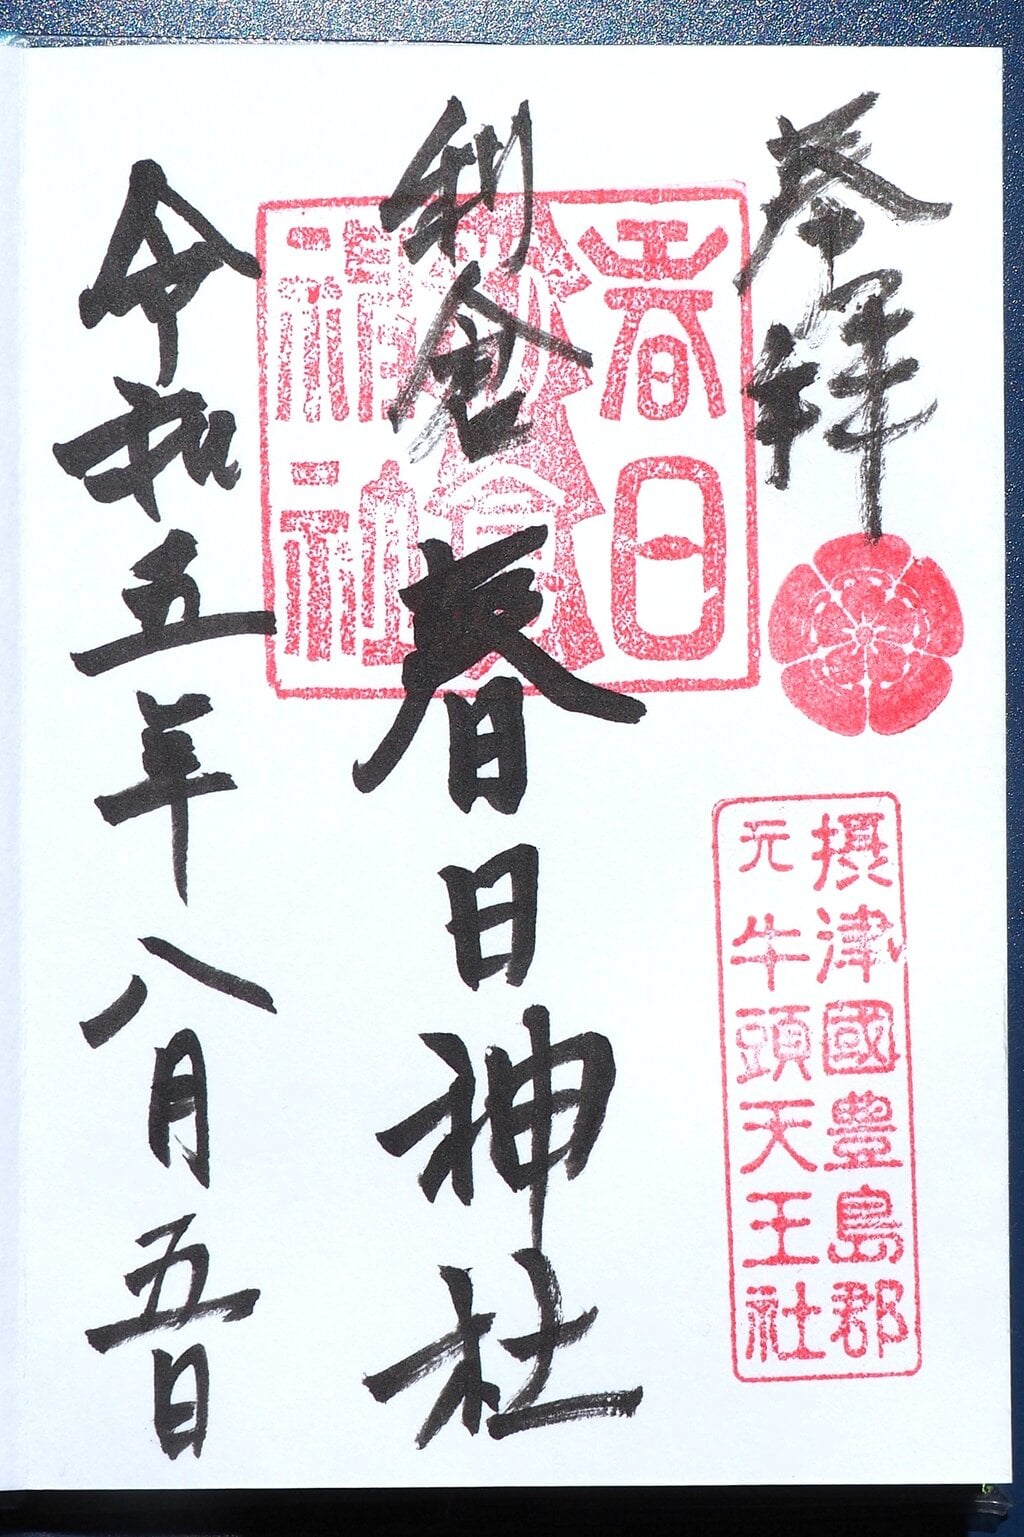 奉拝
摂津國豊島郡
元牛頭天王社
利倉春日神社
春日
神社
令和五年八月五日